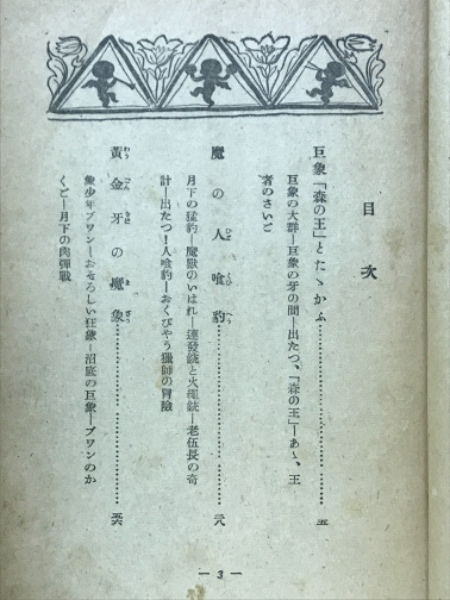 目次
巨象「森の王」とたゝかふ……五
巨象の大群―巨象の牙の間―出たつ、「森の王」―あゝ、王
者のさいご
魔の人喰豹……二八
月下の猛豹―魔獸のいはれ―連發銃と火繩銃―老伍長の奇
計―出たつ!人喰豹―おくびやう獵師の冒險
黃金牙の魔象……五六
象少年ブワン―おそろしい狂象―沼底の巨象―ブワンのか
くご―月下の肉彈戰
— 3 —